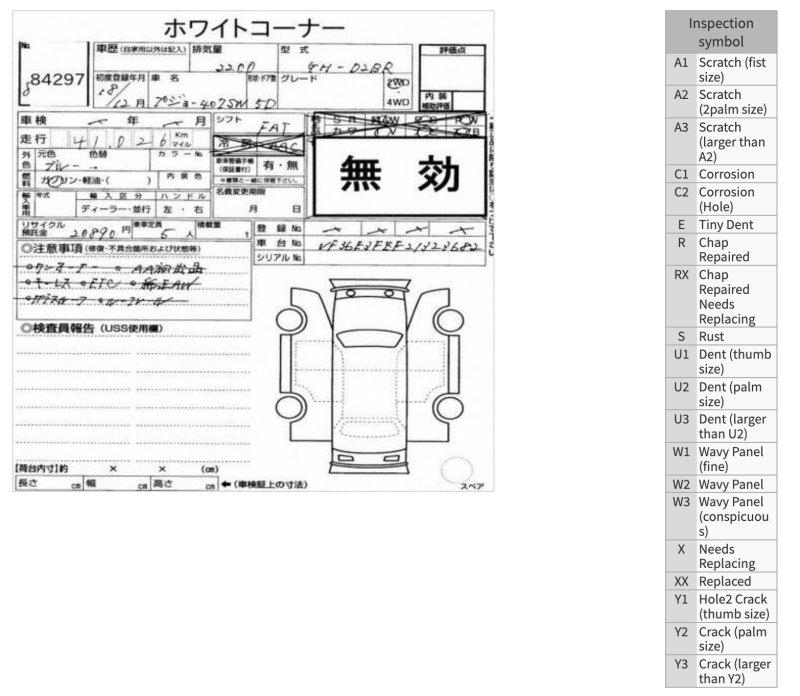 ホワイトコーナー
No.
84297
車歴 (自家用以外は記入)
排気量
2200
型式
GH-D2BR
評価点
初度登録年月
18/12月
車名
プジョー407SW 5D
形状・ドア数
グレード
2WD
4WD
内装
補助評価
車検 年 月
シフト
FAT
走行
41,026
Km
マイル
冷房
AAC
無効
外色
元色
色替
カラーNo.
ブルー
新車整備手帳
(保証書付)
有・無
燃料
ガソリン・軽油・( )
内装色
名義変更期限
月 日
輸入車用
年式
輸入区分
ハンドル
ディーラー・並行
左・右
リサイクル
預託金
20890円
乗車定員
5人
積載量
t
登録No.
車台No.
VF36E3FBF21323682
シリアルNo.
◎注意事項 (修復・不具合箇所および状態等)
ワンオーナー
キーレス ETC 純正AW
◎検査員報告 (USS使用欄)
【荷台内寸】約 × × (cm)
長さ cm 幅 cm 高さ cm ←(車検証上の寸法)
スペア
Inspection symbol
A1 Scratch (fist size)
A2 Scratch (2palm size)
A3 Scratch (larger than A2)
C1 Corrosion
C2 Corrosion (Hole)
E Tiny Dent
R Chap Repaired
RX Chap Repaired Needs Replacing
S Rust
U1 Dent (thumb size)
U2 Dent (palm size)
U3 Dent (larger than U2)
W1 Wavy Panel (fine)
W2 Wavy Panel
W3 Wavy Panel (conspicuous)
X Needs Replacing
XX Replaced
Y1 Hole2 Crack (thumb size)
Y2 Crack (palm size)
Y3 Crack (larger than Y2)